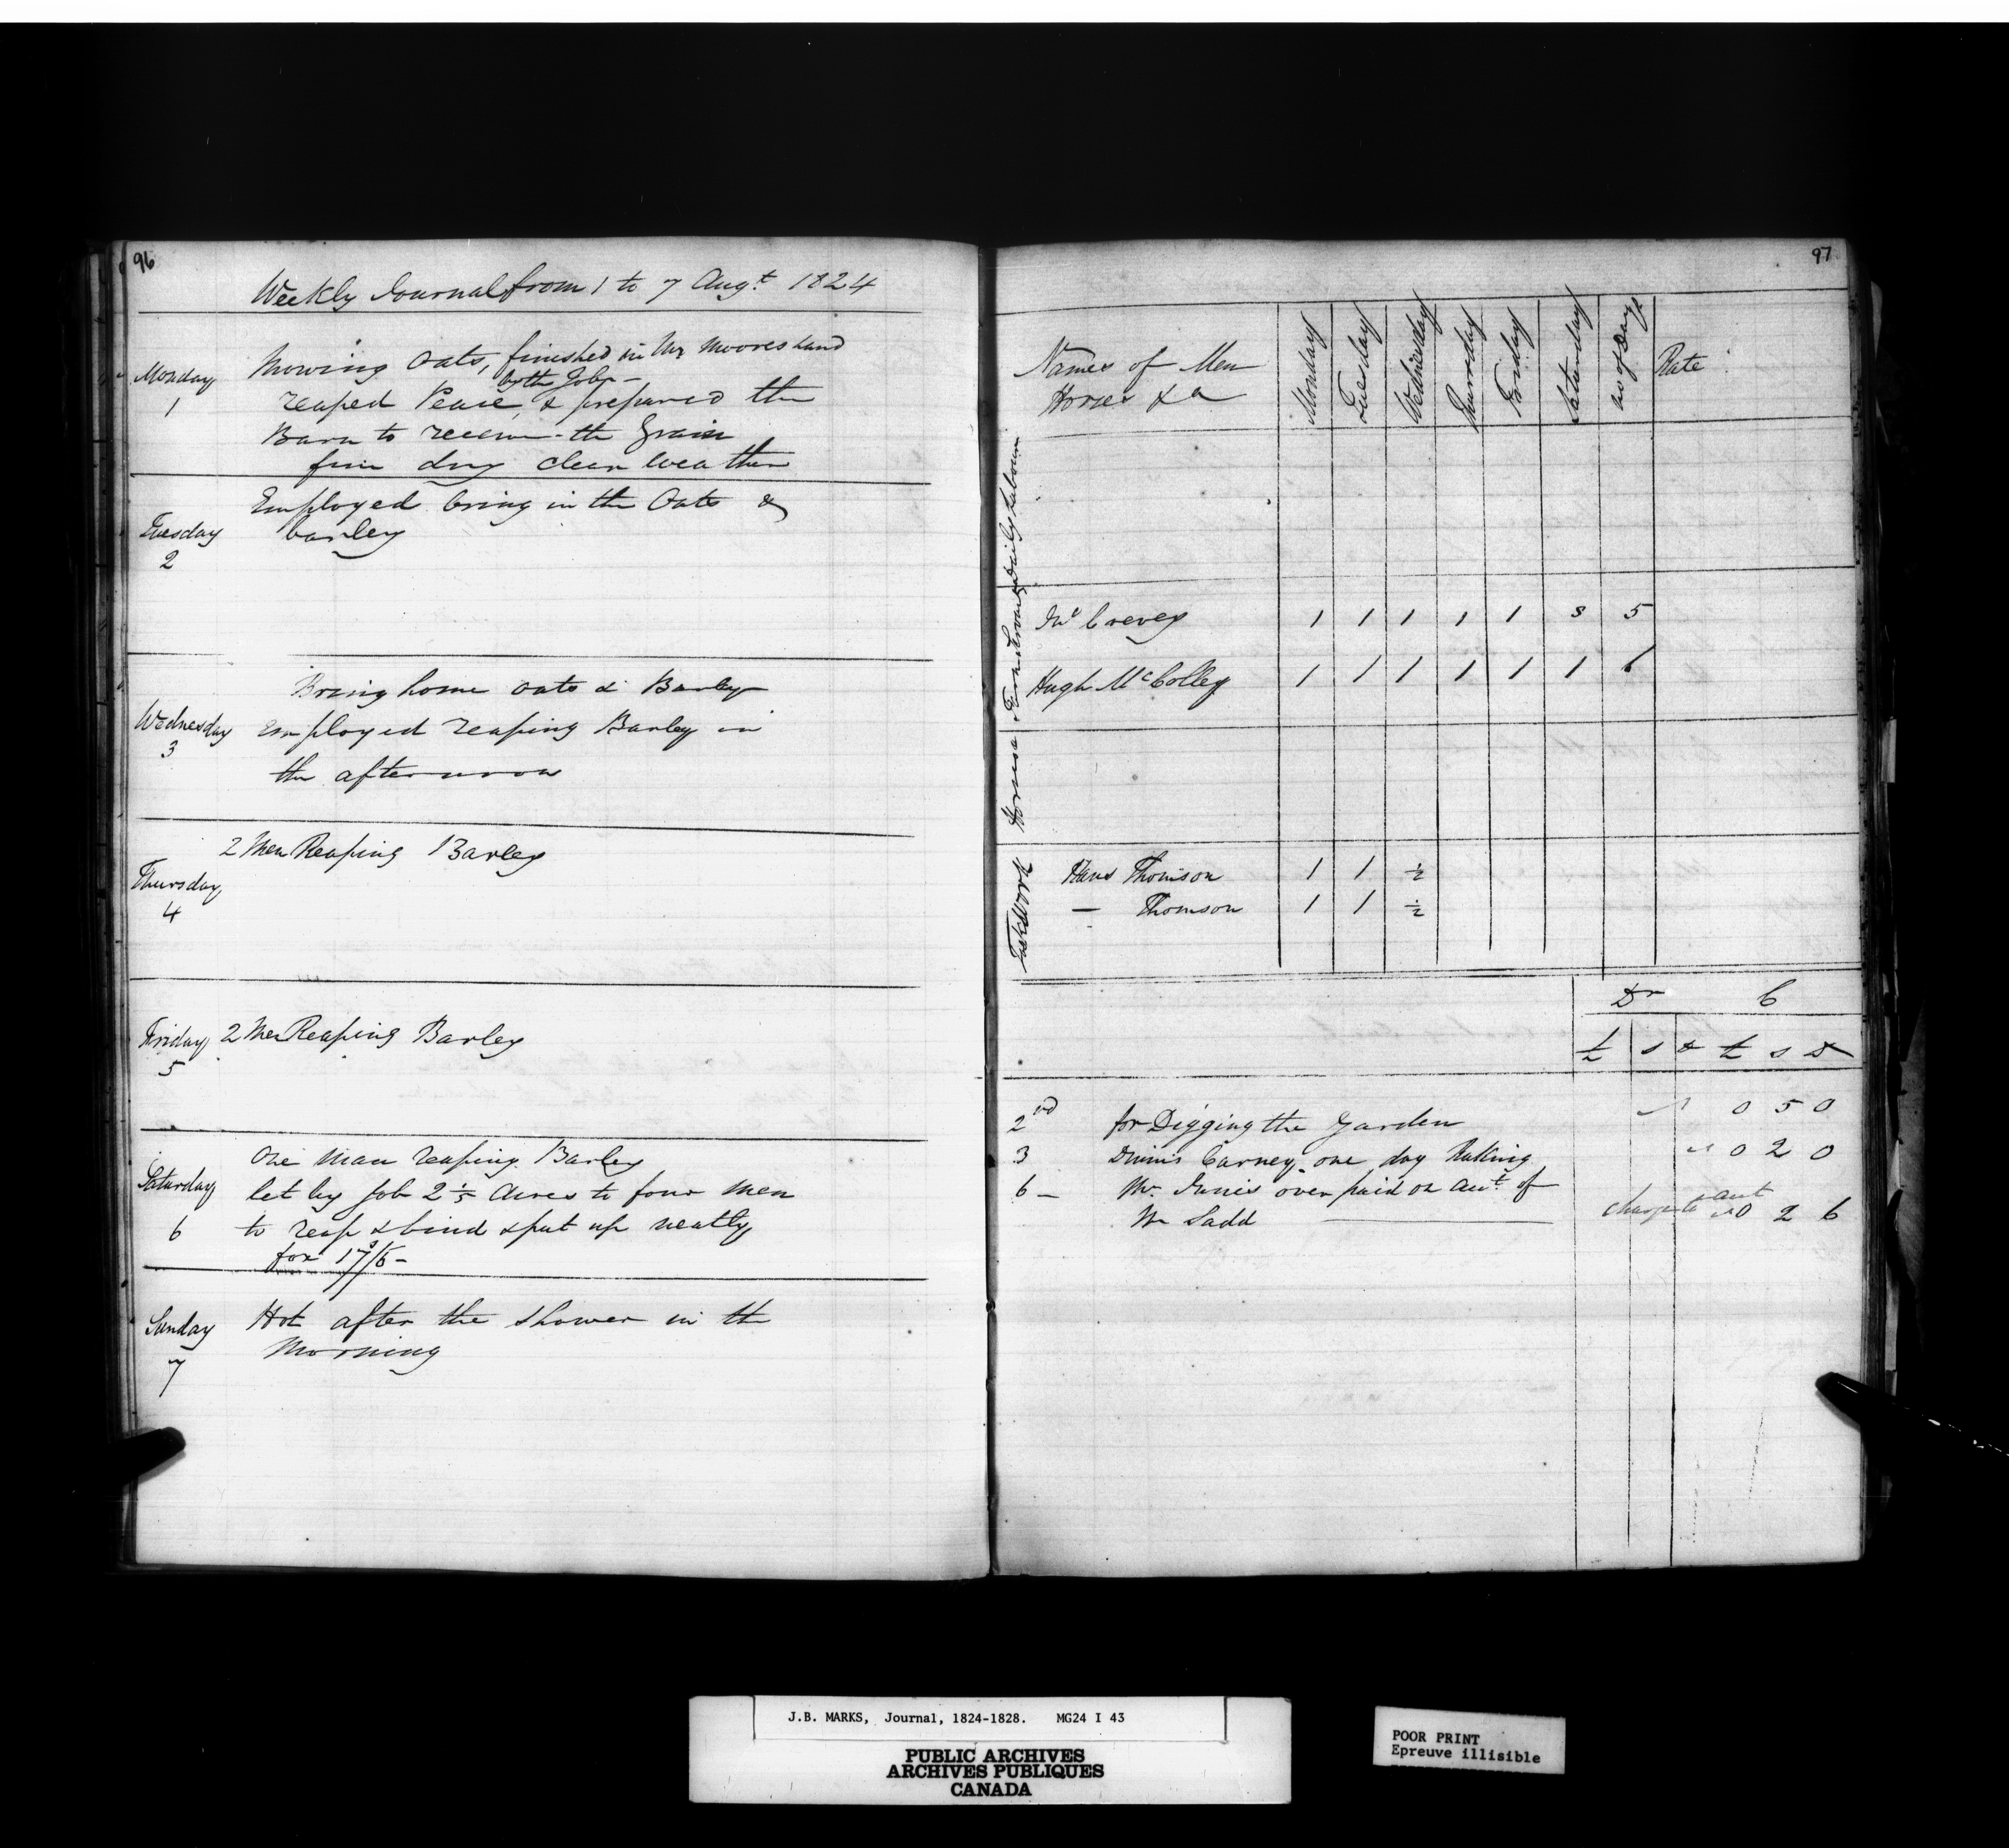 96
Weekly Journal from 1 to 7 Augt 1824
Monday
1
Mowing Oats, finished in Mr Moores land
by the Job -
reaped Pease, & prepared the
Barn to receive the Grain
fine dry clear weather
Tuesday
2
Employed bring in the Oats &
barley
Wednesday
3
Bring home oats & Barley
employed reaping Barley in
the afternoon
Thursday
4
2 Men Reaping Barley
Friday
5
2 Men Reaping Barley
Saturday
6
One Man reaping Barley
let by Job 2 1/5 Acres to four men
to reap & bind & put up neatly
for 17s/6 -
Sunday
7
Hot after the shower in th
Morning
97
Names of Men
Horses &a
Monday
Tuesday
Wednesday
Thursday
Friday
Saturday
No of Days
Rate
Daily Labour
Farm Servants
Jno Crevey 1 1 1 1 1 S 5
Hugh McColley 1 1 1 1 1 1 6
Horses
Taskwork
Hans Thomson 1 1 ½
— Thomson 1 1 ½
Dr C
£ s D £ s D
2nd for Digging the Garden 0 5 0
3 Dinnis Carney one day Raking 0 2 0
6 - Mr. Innis over paid on aut of
Wm Ladd charge to aut 0 2 6
J.B. MARKS, Journal, 1824-1828. MG24 I 43
PUBLIC ARCHIVES
ARCHIVES PUBLIQUES
CANADA
POOR PRINT
Epreuve illisible